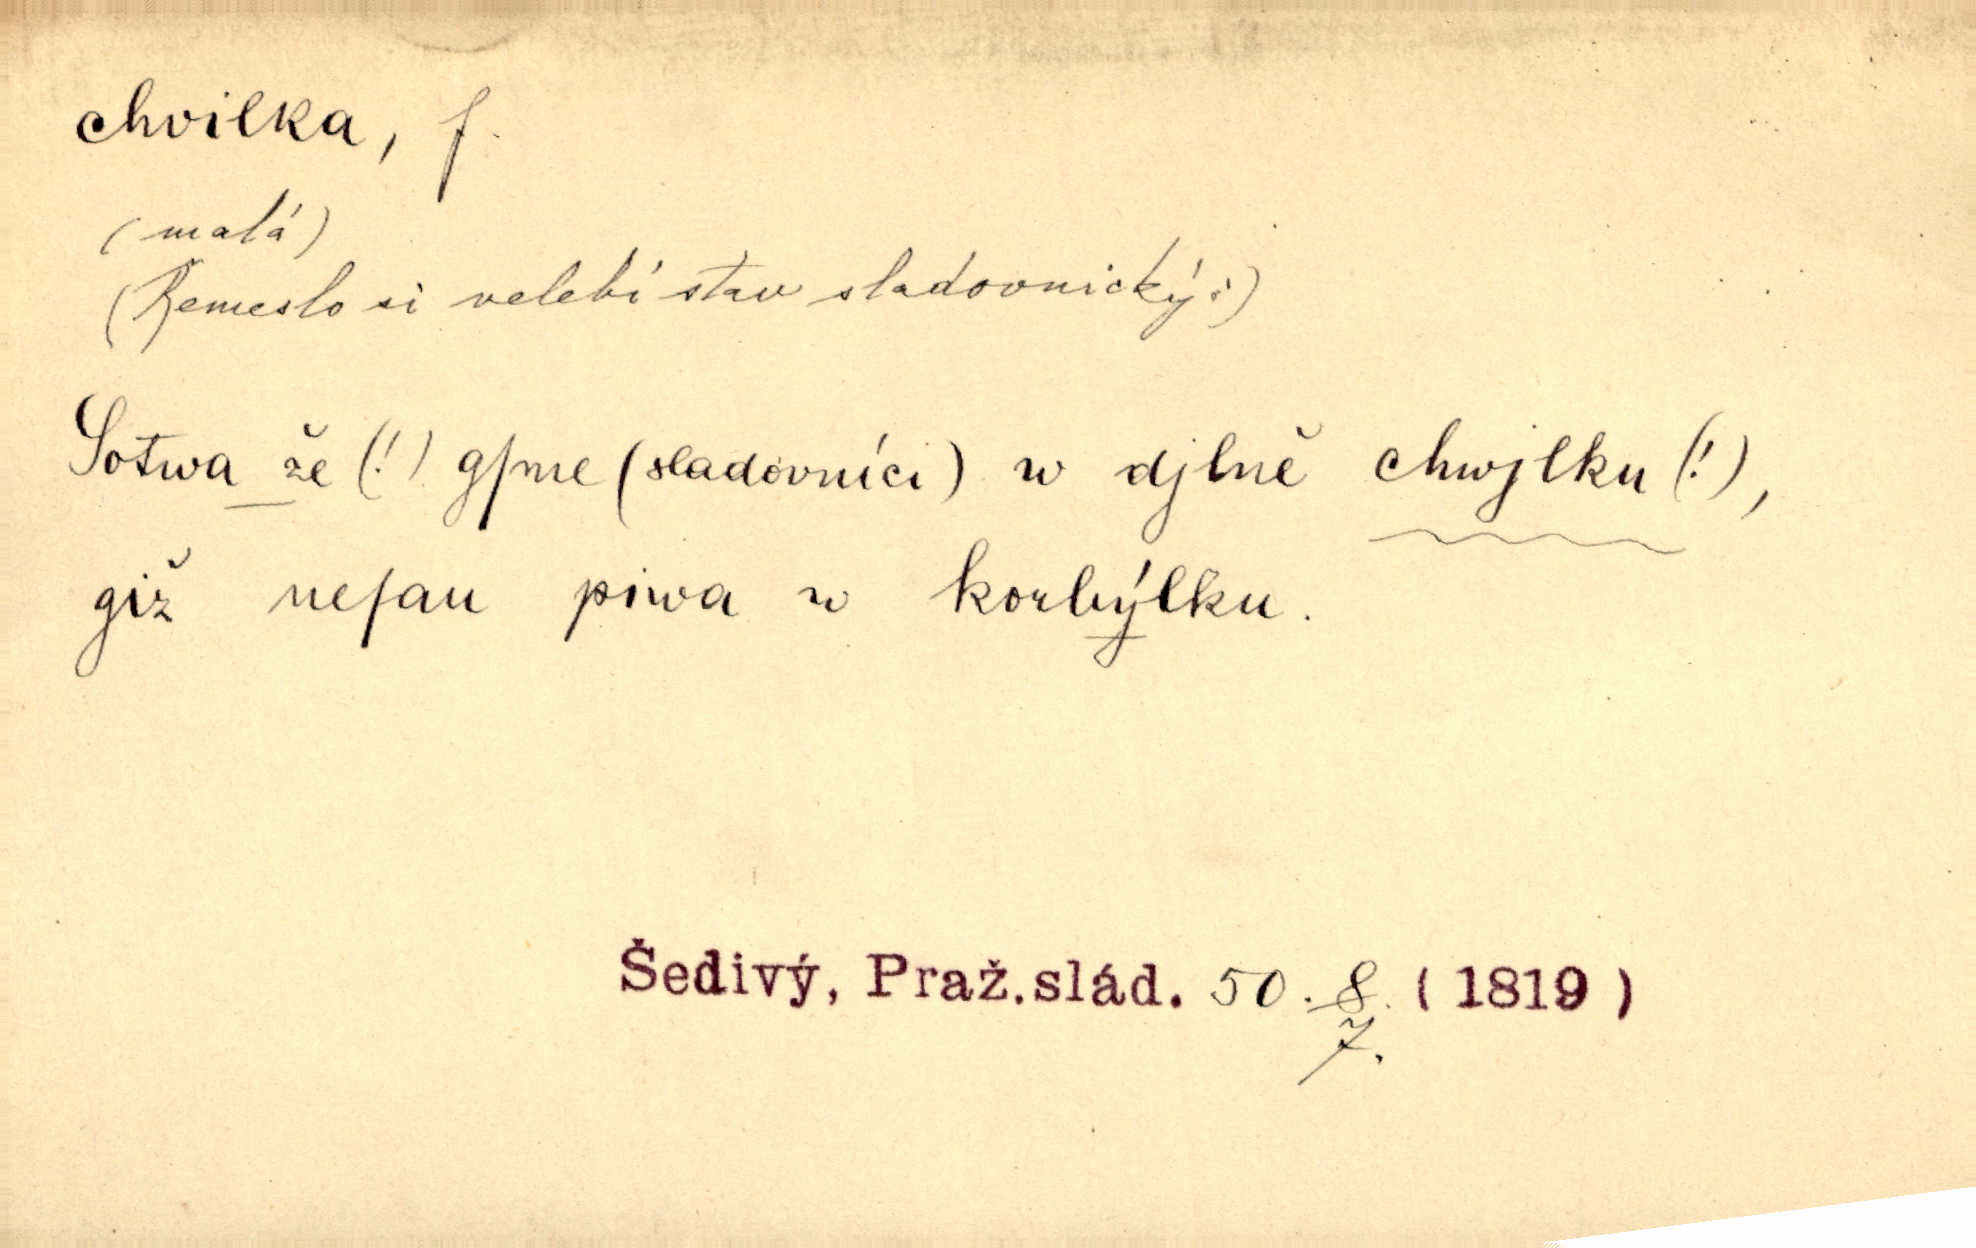 chvilka, f.
(malá)
(Řemeslo si velebí stav sladovnický:)
Sotwa že (!) gſme (sladovníci) w djlně chwjlku (!),
giž neſau piwa w korbýlku.
Šedivý, Praž.slád. 50. 8. (1819)
7.